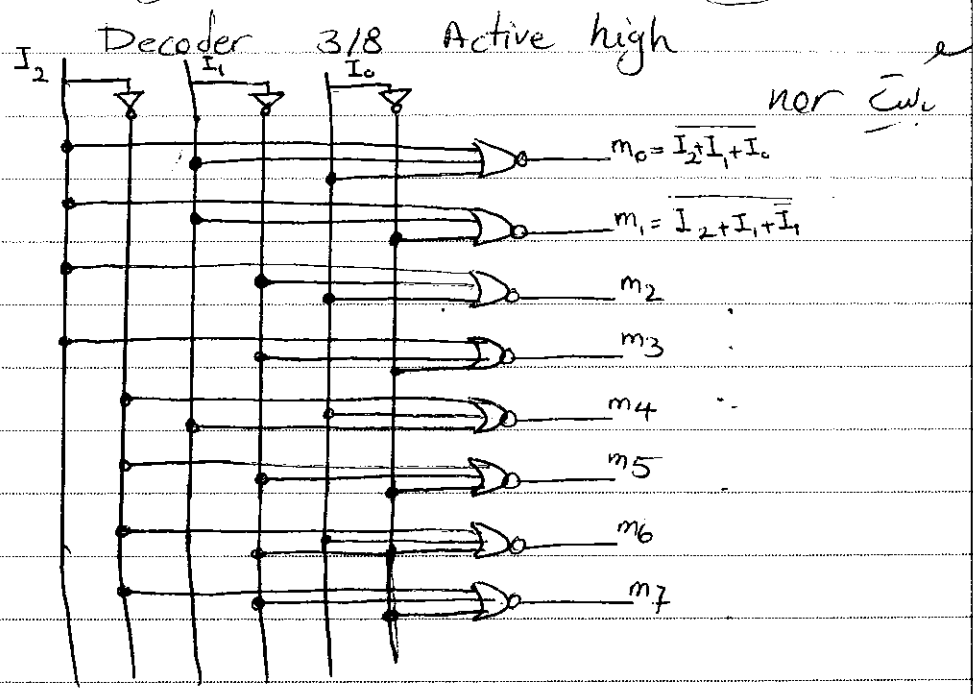 Decoder 3/8 Active high
I₂ I₁ I₀
nor
m₀ = \overline{I₂+I₁+I₀}
m₁ = \overline{I₂+I₁+\overline{I₁}}
m₂
m3
m4
m5
m6
m7